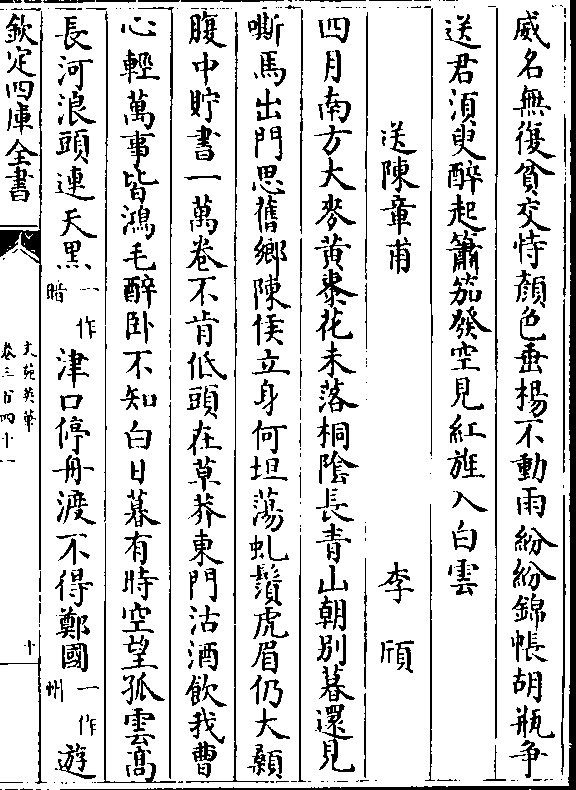 威名無復貧交恃顏色垂楊不動雨紛紛錦帳胡瓶争
送君須臾醉起簫笳發空見紅旌入白雲
送陳章甫 李頎
四月南方大麥黄棗花未落桐陰長青山朝別暮還見
嘶馬出門思舊鄉陳侯立身何坦蕩虬鬚虎眉仍大顙
腹中貯書一萬卷不肯低頭在草莽東門沽酒飲我曹
心輕萬事皆鴻毛醉卧不知白日暮有時空望孤雲髙
長河浪頭連天黒一作暗津口停舟渡不得鄭國一作州遊
欽定四庫全書
文苑英華
卷三百四十一
十